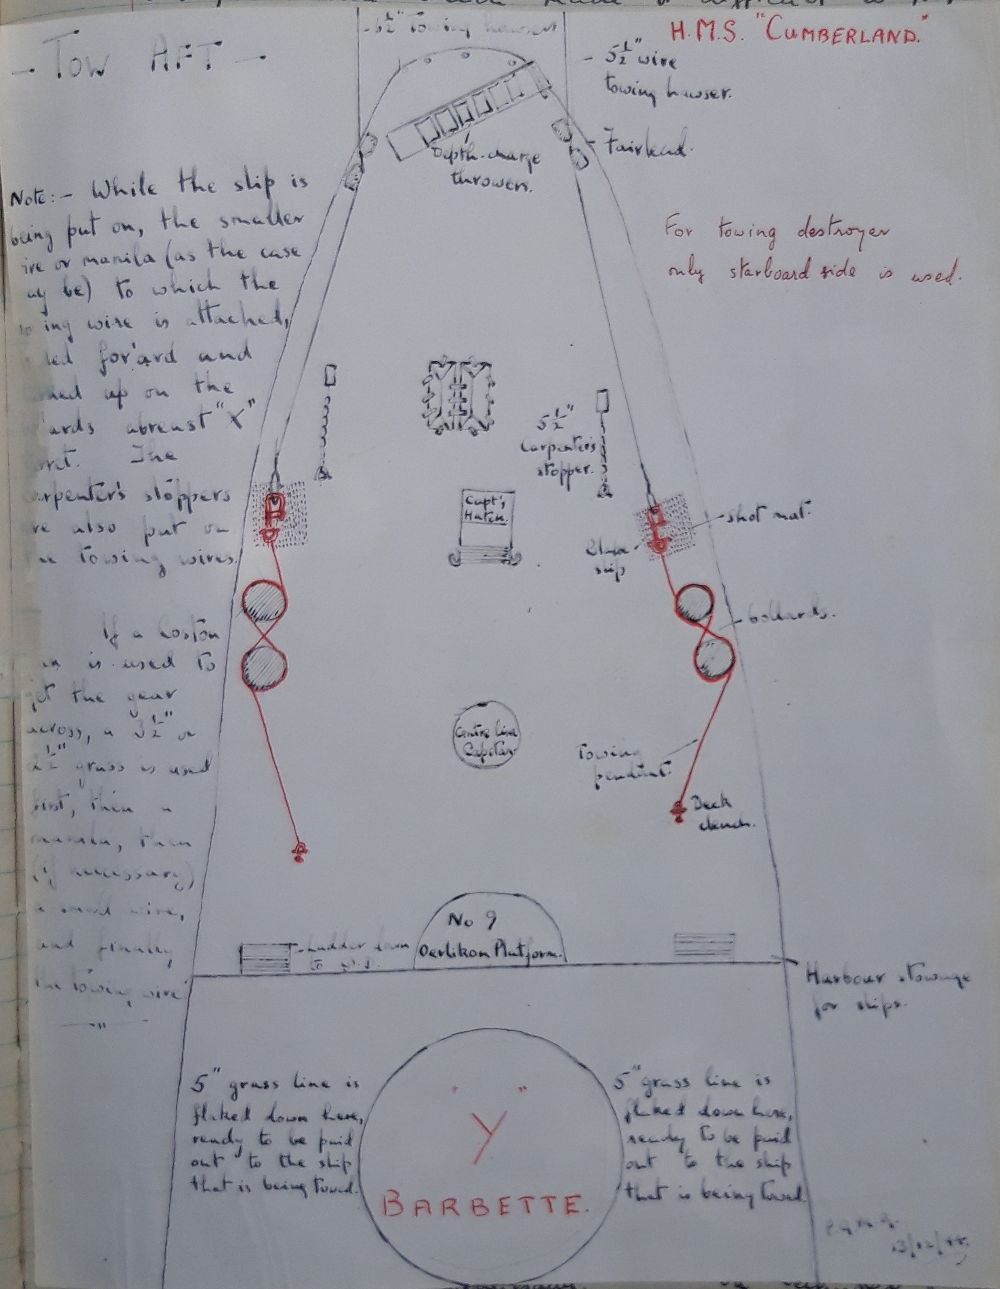 - Tow AFT -
5½" Towing hawser
H.M.S. "CUMBERLAND."
- 5½" wire
towing hawser.
Fairlead.
Depth-charge
throwers.
For towing destroyer
only starboard side is used.
Note:- While the slip is
being put on, the smaller
ire or manila (as the case
ay be) to which the
ing wire is attached,
led for'ard and
up on the
ards abreast "X"
rret. The
arpenter's stoppers
re also put on
he towing wires.
If a Coston
un is used to
get the gear
across, a 3½" or
2½" grass is used
first, then a
manila, then
(if necessary)
a small wire,
and finally
the towing wire.
5½"
Carpenter's
stopper.
Capt's
Hatch.
shot mat.
slip
bollards.
Centre line
Capstan
Towing
pendant.
Deck
clench.
No 9
Oerlikon Platform.
Ladder down
to
Harbour stowage
for slips.
5" grass line is
flaked down here,
ready to be paid
out to the ship
that is being towed.
5" grass line is
flaked down here,
ready to be paid
out to the ship
that is being towed
"Y"
BARBETTE.